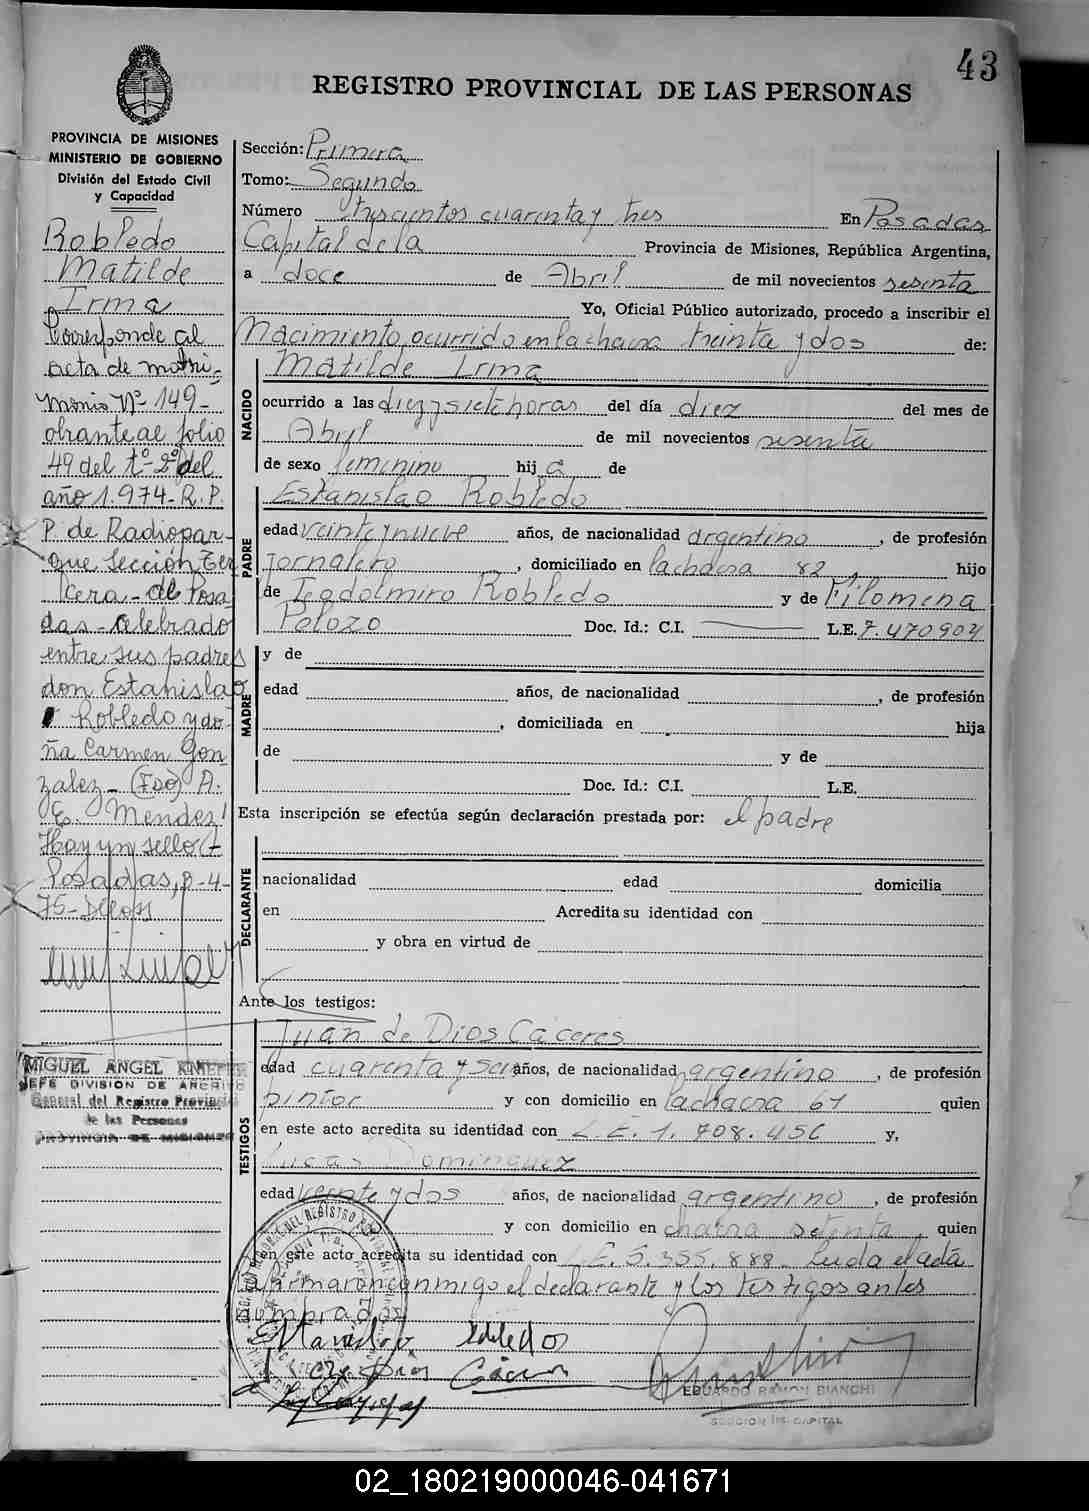 43
REGISTRO PROVINCIAL DE LAS PERSONAS
PROVINCIA DE MISIONES
MINISTERIO DE GOBIERNO
División del Estado Civil
y Capacidad
Robledo
Matilde
Irma
Corresponde al
acta de matri-
monio Nº 149-
obrante al folio
49 del tº 2º del
año 1.974- R. P.
P. de Radiopar-
que Sección Ter
cera - de Posa
das - celebrado
entre sus padres
don Estanislao
Robledo y do-
ña Carmen Gon
zalez - (Fdo) A.
E. Mendez
Hay un sello
Posadas, 8-4-
75-
MIGUEL ANGEL
JEFE DIVISION DE ARCHIVO
General del Registro Provincial
de las Personas
PROVINCIA DE MISIONES
Sección: Primera
Tomo: Segundo
Número trescientos cuarenta y tres En Posadas
Capital de la Provincia de Misiones, República Argentina,
a doce de Abril de mil novecientos sesenta
Yo, Oficial Público autorizado, procedo a inscribir el
Nacimiento ocurrido en la chacra treinta y dos de:
NACIDO
Matilde Irma
ocurrido a las diez y siete horas del día diez del mes de
Abril de mil novecientos sesenta
de sexo femenino hij a de
PADRE
Estanislao Robledo
edad veinte y nueve años, de nacionalidad argentino, de profesión
Jornalero, domiciliado en la chacra 82 hijo
de Teodolmiro Robledo y de Filomena
Pelozo Doc. Id.: C.I. L.E. 7.470904
MADRE
y de
edad años, de nacionalidad, de profesión
, domiciliada en hija
de y de
Doc. Id.: C.I. L.E.
Esta inscripción se efectúa según declaración prestada por: el padre
DECLARANTE
nacionalidad edad domicilia
en Acredita su identidad con
y obra en virtud de
Ante los testigos:
TESTIGOS
Juan de Dios Caceres
edad cuarenta y seis años, de nacionalidad argentino, de profesión
pintor y con domicilio en la chacra 67 quien
en este acto acredita su identidad con L.E. 1.708.456 y,
Lucas Dominguez
edad veinte y dos años, de nacionalidad argentino, de profesión
y con domicilio en chacra setenta quien
en este acto acredita su identidad con L.E. 5.355.888 Leida el acta
la firmaron conmigo el declarante y los testigos antes
nombrados
Estanislao Robledo
Juan de Dios Cáceres
EDUARDO RAMON BIANCHI
SECCION 1ra CAPITAL
02_180219000046-041671